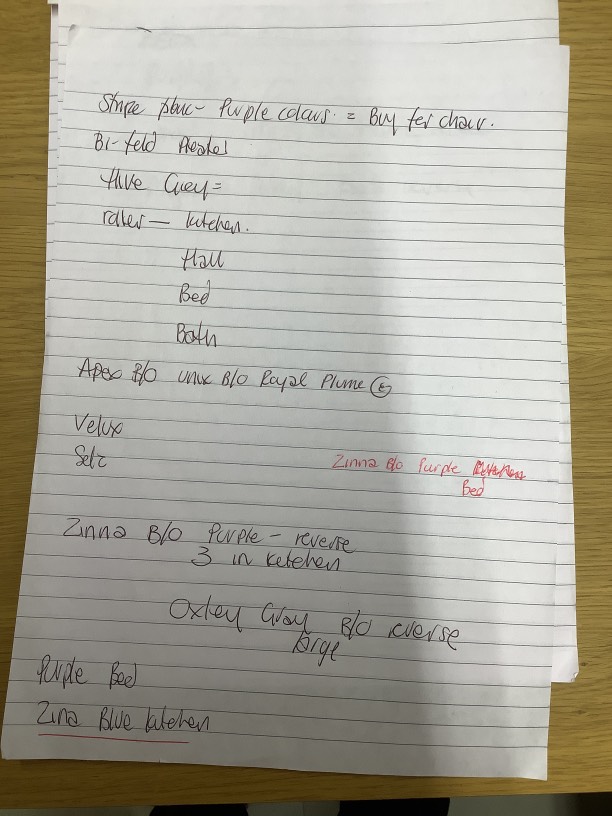 Stripe - Purple colours = Buy for chair.
Bi-fold Pleated
Hive Grey =
roller — kitchen.
Hall
Bed
Bath
Apex B/O Unix B/O Royal Plume
Velux
Zinna B/O Purple
Bed
Zinna B/O Purple - reverse
3 in kitchen
Oxley Gray B/O reverse
large
Purple Bed
Zina Blue kitchen